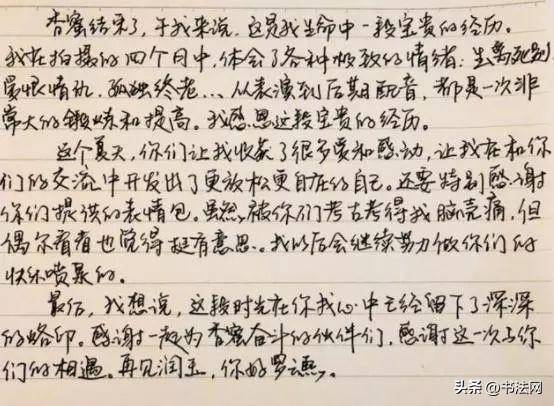 香蜜结束了,于我来说,这是我生命中一段宝贵的经历。
我在拍摄的四个月中,体会了各种极致的情绪:生离死别
爱恨情仇,孤独终老...从表演到后期配音,都是一次非
常大的锻炼和提高。我感恩这段宝贵的经历。
这个夏天,你们让我收获了很多爱和感动,让我在和你
们的交流中开发出了更放松更自在的自己。还要特别感谢
你们提供的表情包。虽然被你们考古考得我脑壳痛,但
偶尔看看也觉得挺有意思。我以后会继续努力做你们的
快乐喷泉的。
最后,我想说,这段时光在你我心中已经留下了深深
的烙印。感谢一起为香蜜奋斗的伙伴们,感谢这一次与你
们的相遇。再见润玉,你好罗云熙。
头条 @书法网